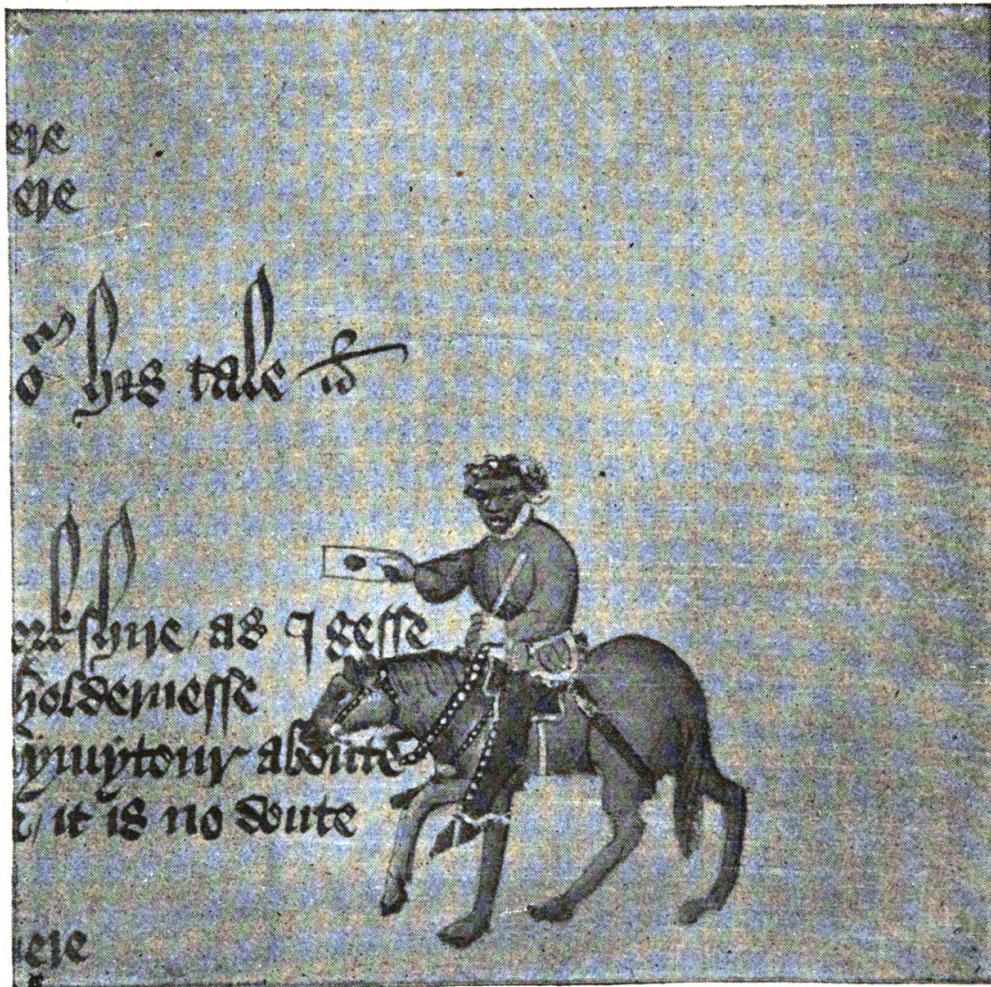 ere
ere
his tale
shire / as I gesse
holdernesse
ymytour aboute
/ it is no doute
ere